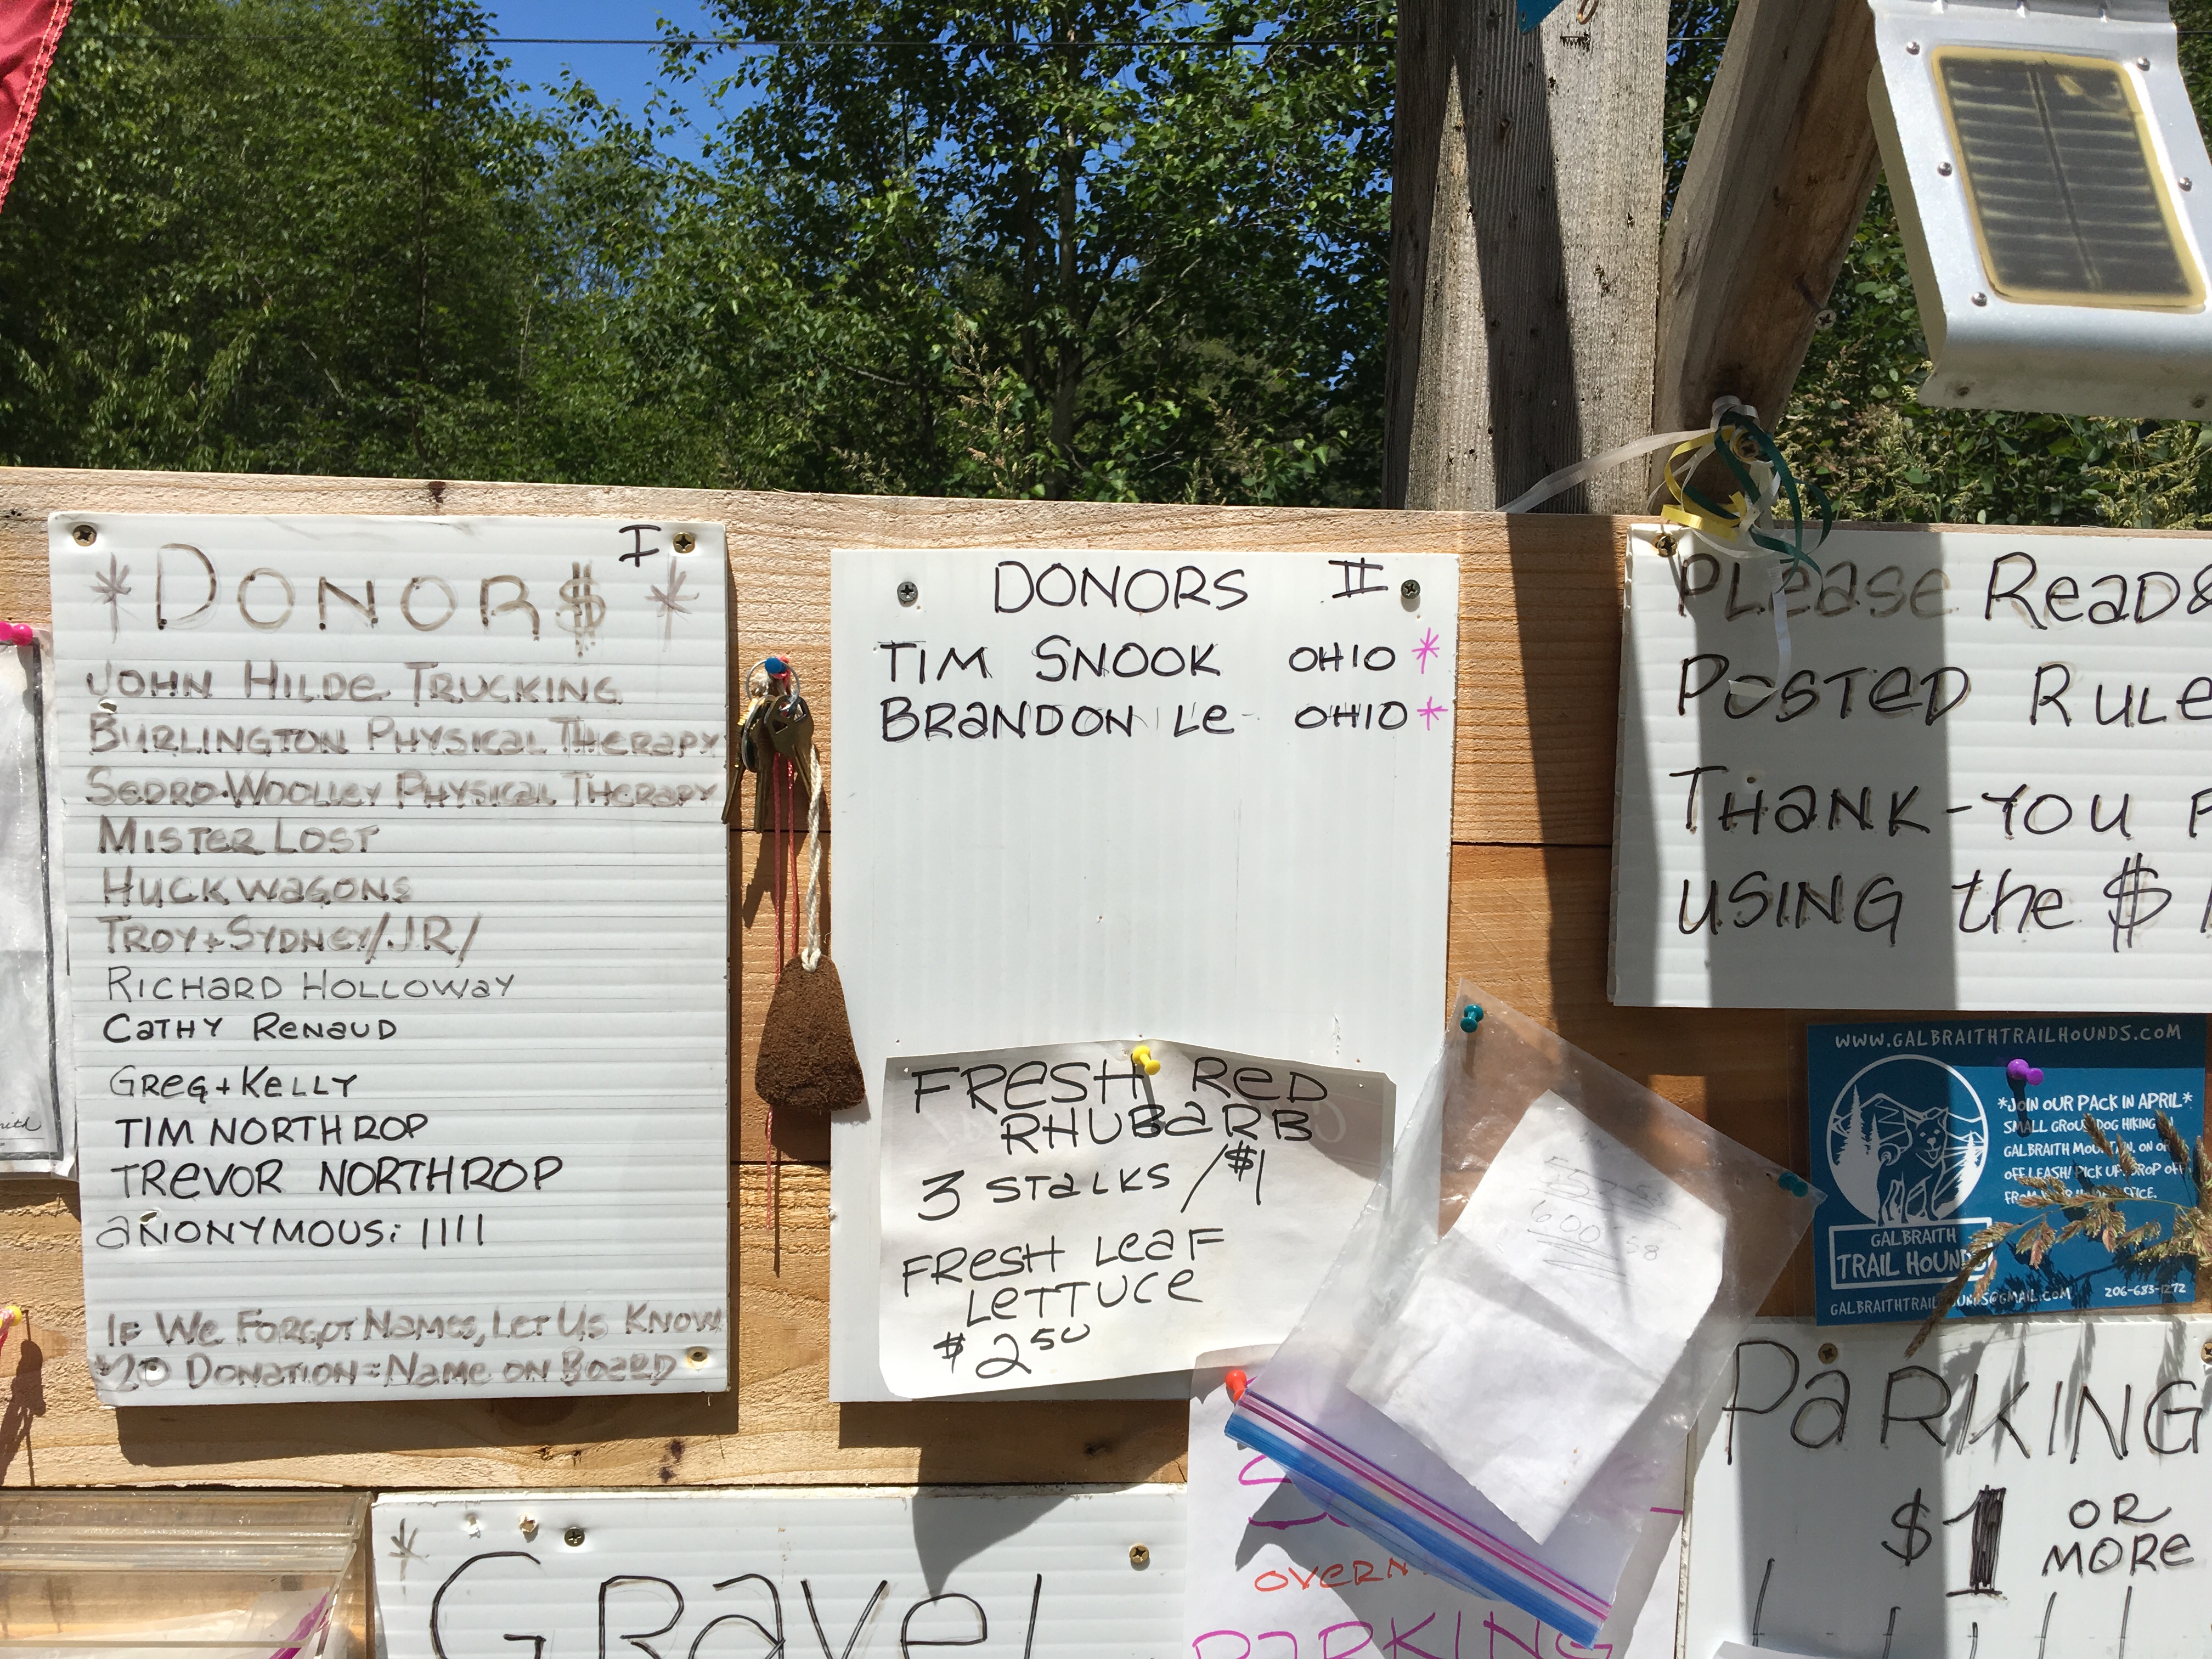 I
*DONOR$*
JOHN HILDE TRUCKING
BURLINGTON PHYSICAL THERAPY
SEDRO-WOOLLEY PHYSICAL THERAPY
MISTER LOST
HUCKWAGONS
TROY+SYDNEY/JR/
RICHARD HOLLOWAY
CATHY RENAUD
GREG+KELLY
TIM NORTHROP
TREVOR NORTHROP
ANONYMOUS: IIII
IF WE FORGOT NAMES, LET US KNOW
$20 DONATION=NAME ON BOARD
DONORS II
TIM SNOOK OHIO *
BRANDON LE OHIO *
FRESH RED
RHUBARB
3 STALKS /$1
FRESH LEAF
LETTUCE
$2.50
PLEASE READ &
POSTED RULE
THANK-YOU F
USING the $
WWW.GALBRAITHTRAILHOUNDS.COM
*JOIN OUR PACK IN APRIL*
SMALL GROUP DOG HIKING
GALBRAITH MOUNTAIN. ON OR
OFF LEASH! PICK UP/DROP OFF
FROM
GALBRAITH
TRAIL HOUNDS
GALBRAITHTRAILHOUNDS@GMAIL.COM 206-683-1272
PARKING
$1 OR
MORE
GRAVEL
OVERN
PARKING